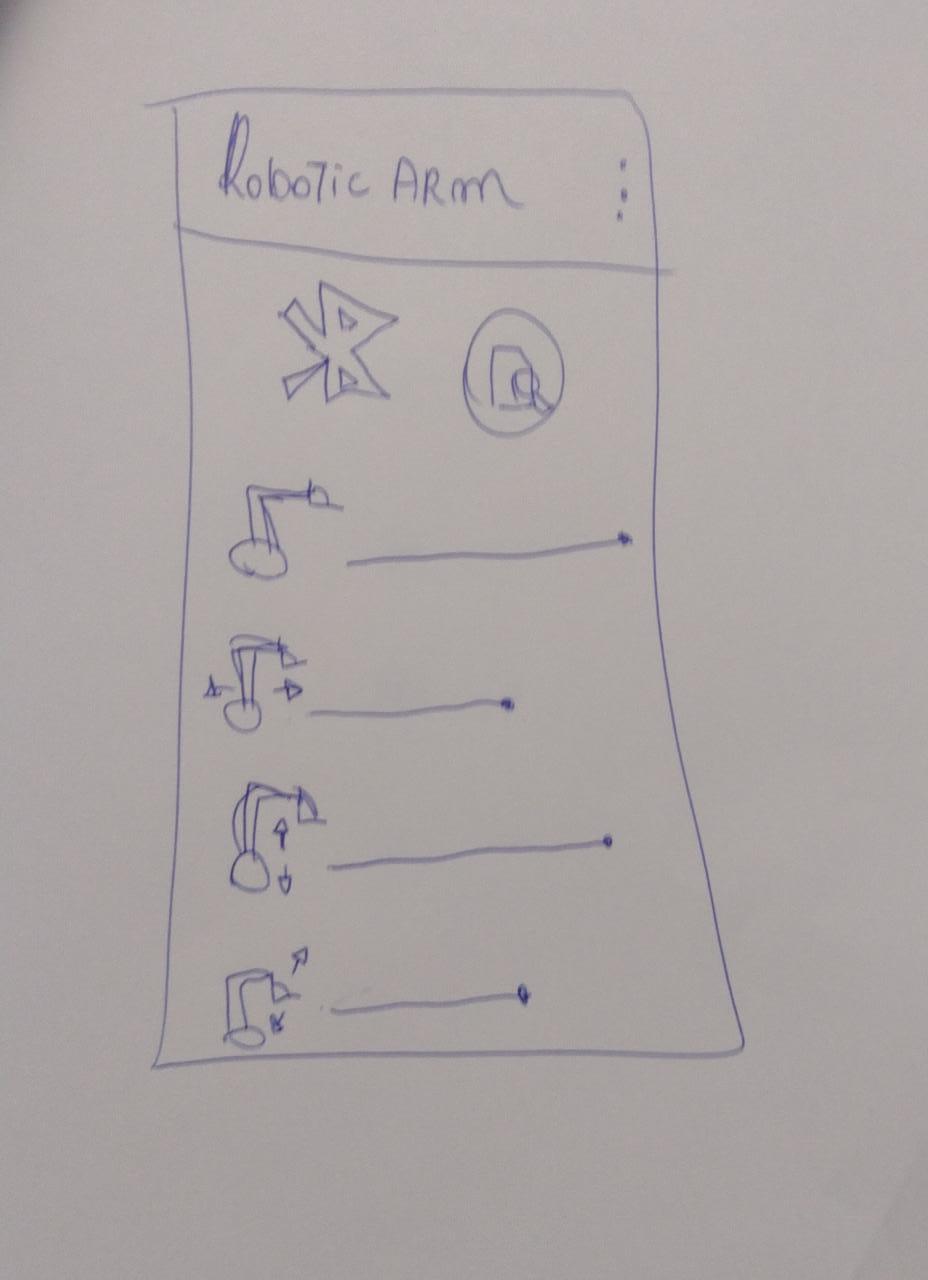 Robotic ARm